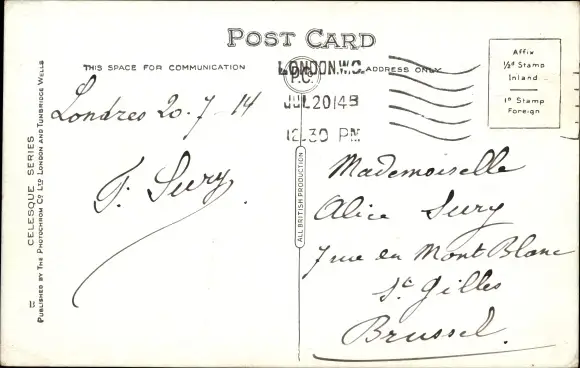 POST CARD
THIS SPACE FOR COMMUNICATION
ADDRESS ONLY
LONDON.W.C.
P.C.
JUL 20 14 B
12.30 PM
Affix
½d Stamp
Inland
1d Stamp
Foreign
Londres 20-7-14
F. Sury
Mademoiselle
Alice Sury
7 rue du Mont Blanc
St. Gilles
Brussel.
ALL BRITISH PRODUCTION
CELESQUE SERIES
PUBLISHED BY THE PHOTOCHROM CO LTD LONDON AND TUNBRIDGE WELLS